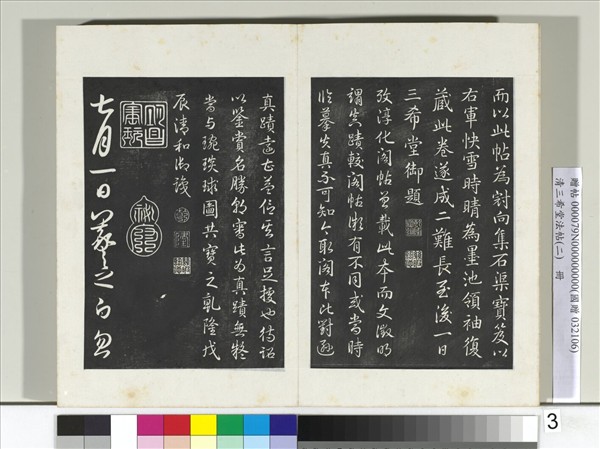 而以此帖為對向集石渠寶笈以
右軍快雪時晴為墨池領袖復
藏此卷遂成二難長至後一日
三希堂御題
攷淳化閣帖曾載此本而文徵明
謂真蹟較閣帖頗有不同或當時
臨摹失真不可知今取閣本比對遜
真蹟遠甚益信其言足據也待詔
以鑒賞名勝朝審此為真蹟無疑
當与琬琰球圖共寶之乾隆戊
辰清和御識
七月一日羲之白忽
贈帖 0000079N000000000(國贈 032106)
清三希堂法帖(二) 冊
3